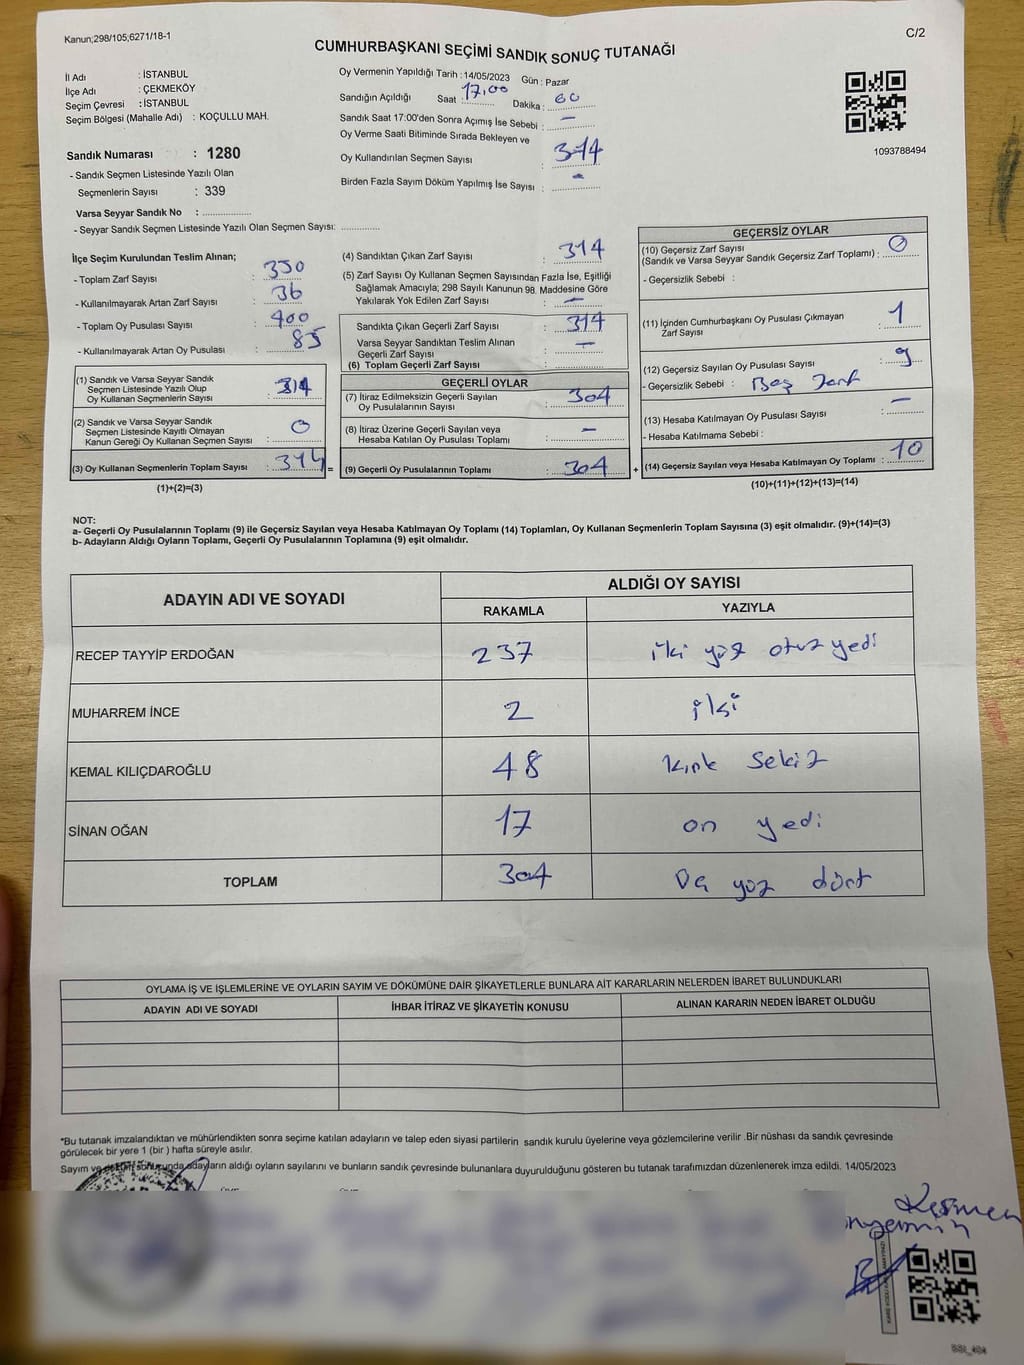 Kanun;298/105;6271/18-1
C/2
CUMHURBAŞKANI SEÇİMİ SANDIK SONUÇ TUTANAĞI
İl Adı : İSTANBUL
İlçe Adı : ÇEKMEKÖY
Seçim Çevresi : İSTANBUL
Seçim Bölgesi (Mahalle Adı) : KOÇULLU MAH.
Sandık Numarası : 1280
- Sandık Seçmen Listesinde Yazılı Olan
Seçmenlerin Sayısı : 339
Varsa Seyyar Sandık No : ................
- Seyyar Sandık Seçmen Listesinde Yazılı Olan Seçmen Sayısı: ............
Oy Vermenin Yapıldığı Tarih : 14/05/2023 Gün : Pazar
Sandığın Açıldığı Saat 17,00 Dakika : 60
Sandık Saat 17:00'den Sonra Açımış İse Sebebi : —
Oy Verme Saati Bitiminde Sırada Bekleyen ve
Oy Kullandırılan Seçmen Sayısı : 314
Birden Fazla Sayım Döküm Yapılmış İse Sayısı : -
1093788494
İlçe Seçim Kurulundan Teslim Alınan;
- Toplam Zarf Sayısı : 350
- Kullanılmayarak Artan Zarf Sayısı : 36
- Toplam Oy Pusulası Sayısı : 400
- Kullanılmayarak Artan Oy Pusulası : 85
(1) Sandık ve Varsa Seyyar Sandık
Seçmen Listesinde Yazılı Olup
Oy Kullanan Seçmenlerin Sayısı : 314
(2) Sandık ve Varsa Seyyar Sandık
Seçmen Listesinde Kayıtlı Olmayan
Kanun Gereği Oy Kullanan Seçmen Sayısı : 0
(3) Oy Kullanan Seçmenlerin Toplam Sayısı : 314 =
(1)+(2)=(3)
(4) Sandıktan Çıkan Zarf Sayısı : 314
(5) Zarf Sayısı Oy Kullanan Seçmen Sayısından Fazla İse, Eşitliği
Sağlamak Amacıyla; 298 Sayılı Kanunun 98. Maddesine Göre
Yakılarak Yok Edilen Zarf Sayısı : —
Sandıkta Çıkan Geçerli Zarf Sayısı : 314
Varsa Seyyar Sandıktan Teslim Alınan
Geçerli Zarf Sayısı : —
(6) Toplam Geçerli Zarf Sayısı :
GEÇERLİ OYLAR
(7) İtiraz Edilmeksizin Geçerli Sayılan
Oy Pusulalarının Sayısı : 304
(8) İtiraz Üzerine Geçerli Sayılan veya
Hesaba Katılan Oy Pusulası Toplamı : —
(9) Geçerli Oy Pusulalarının Toplamı : 304 +
GEÇERSİZ OYLAR
(10) Geçersiz Zarf Sayısı
(Sandık ve Varsa Seyyar Sandık Geçersiz Zarf Toplamı) : 0
- Geçersizlik Sebebi :
(11) İçinden Cumhurbaşkanı Oy Pusulası Çıkmayan
Zarf Sayısı : 1
(12) Geçersiz Sayılan Oy Pusulası Sayısı : 9
- Geçersizlik Sebebi : Boş Zarf
(13) Hesaba Katılmayan Oy Pusulası Sayısı : —
- Hesaba Katılmama Sebebi :
(14) Geçersiz Sayılan veya Hesaba Katılmayan Oy Toplamı : 10
(10)+(11)+(12)+(13)=(14)
NOT:
a- Geçerli Oy Pusulalarının Toplamı (9) ile Geçersiz Sayılan veya Hesaba Katılmayan Oy Toplamı (14) Toplamları, Oy Kullanan Seçmenlerin Toplam Sayısına (3) eşit olmalıdır. (9)+(14)=(3)
b- Adayların Aldığı Oyların Toplamı, Geçerli Oy Pusulalarının Toplamına (9) eşit olmalıdır.
ADAYIN ADI VE SOYADI ALDIĞI OY SAYISI
RAKAMLA YAZIYLA
RECEP TAYYİP ERDOĞAN 237 iki yüz otuz yedi
MUHARREM İNCE 2 iki
KEMAL KILIÇDAROĞLU 48 kırk sekiz
SİNAN OĞAN 17 on yedi
TOPLAM 304 Üç yüz dört
OYLAMA İŞ VE İŞLEMLERİNE VE OYLARIN SAYIM VE DÖKÜMÜNE DAİR ŞİKAYETLERLE BUNLARA AİT KARARLARIN NELERDEN İBARET BULUNDUKLARI
ADAYIN ADI VE SOYADI İHBAR İTİRAZ VE ŞİKAYETİN KONUSU ALINAN KARARIN NEDEN İBARET OLDUĞU
*Bu tutanak imzalandıktan ve mühürlendikten sonra seçime katılan adayların ve talep eden siyasi partilerin sandık kurulu üyelerine veya gözlemcilerine verilir .Bir nüshası da sandık çevresinde
görülecek bir yere 1 (bir ) hafta süreyle asılır.
Sayım ve döküm sonucunda adayların aldığı oyların sayılarını ve bunların sandık çevresinde bulunanlara duyurulduğunu gösteren bu tutanak tarafımızdan düzenlenerek imza edildi. 14/05/2023